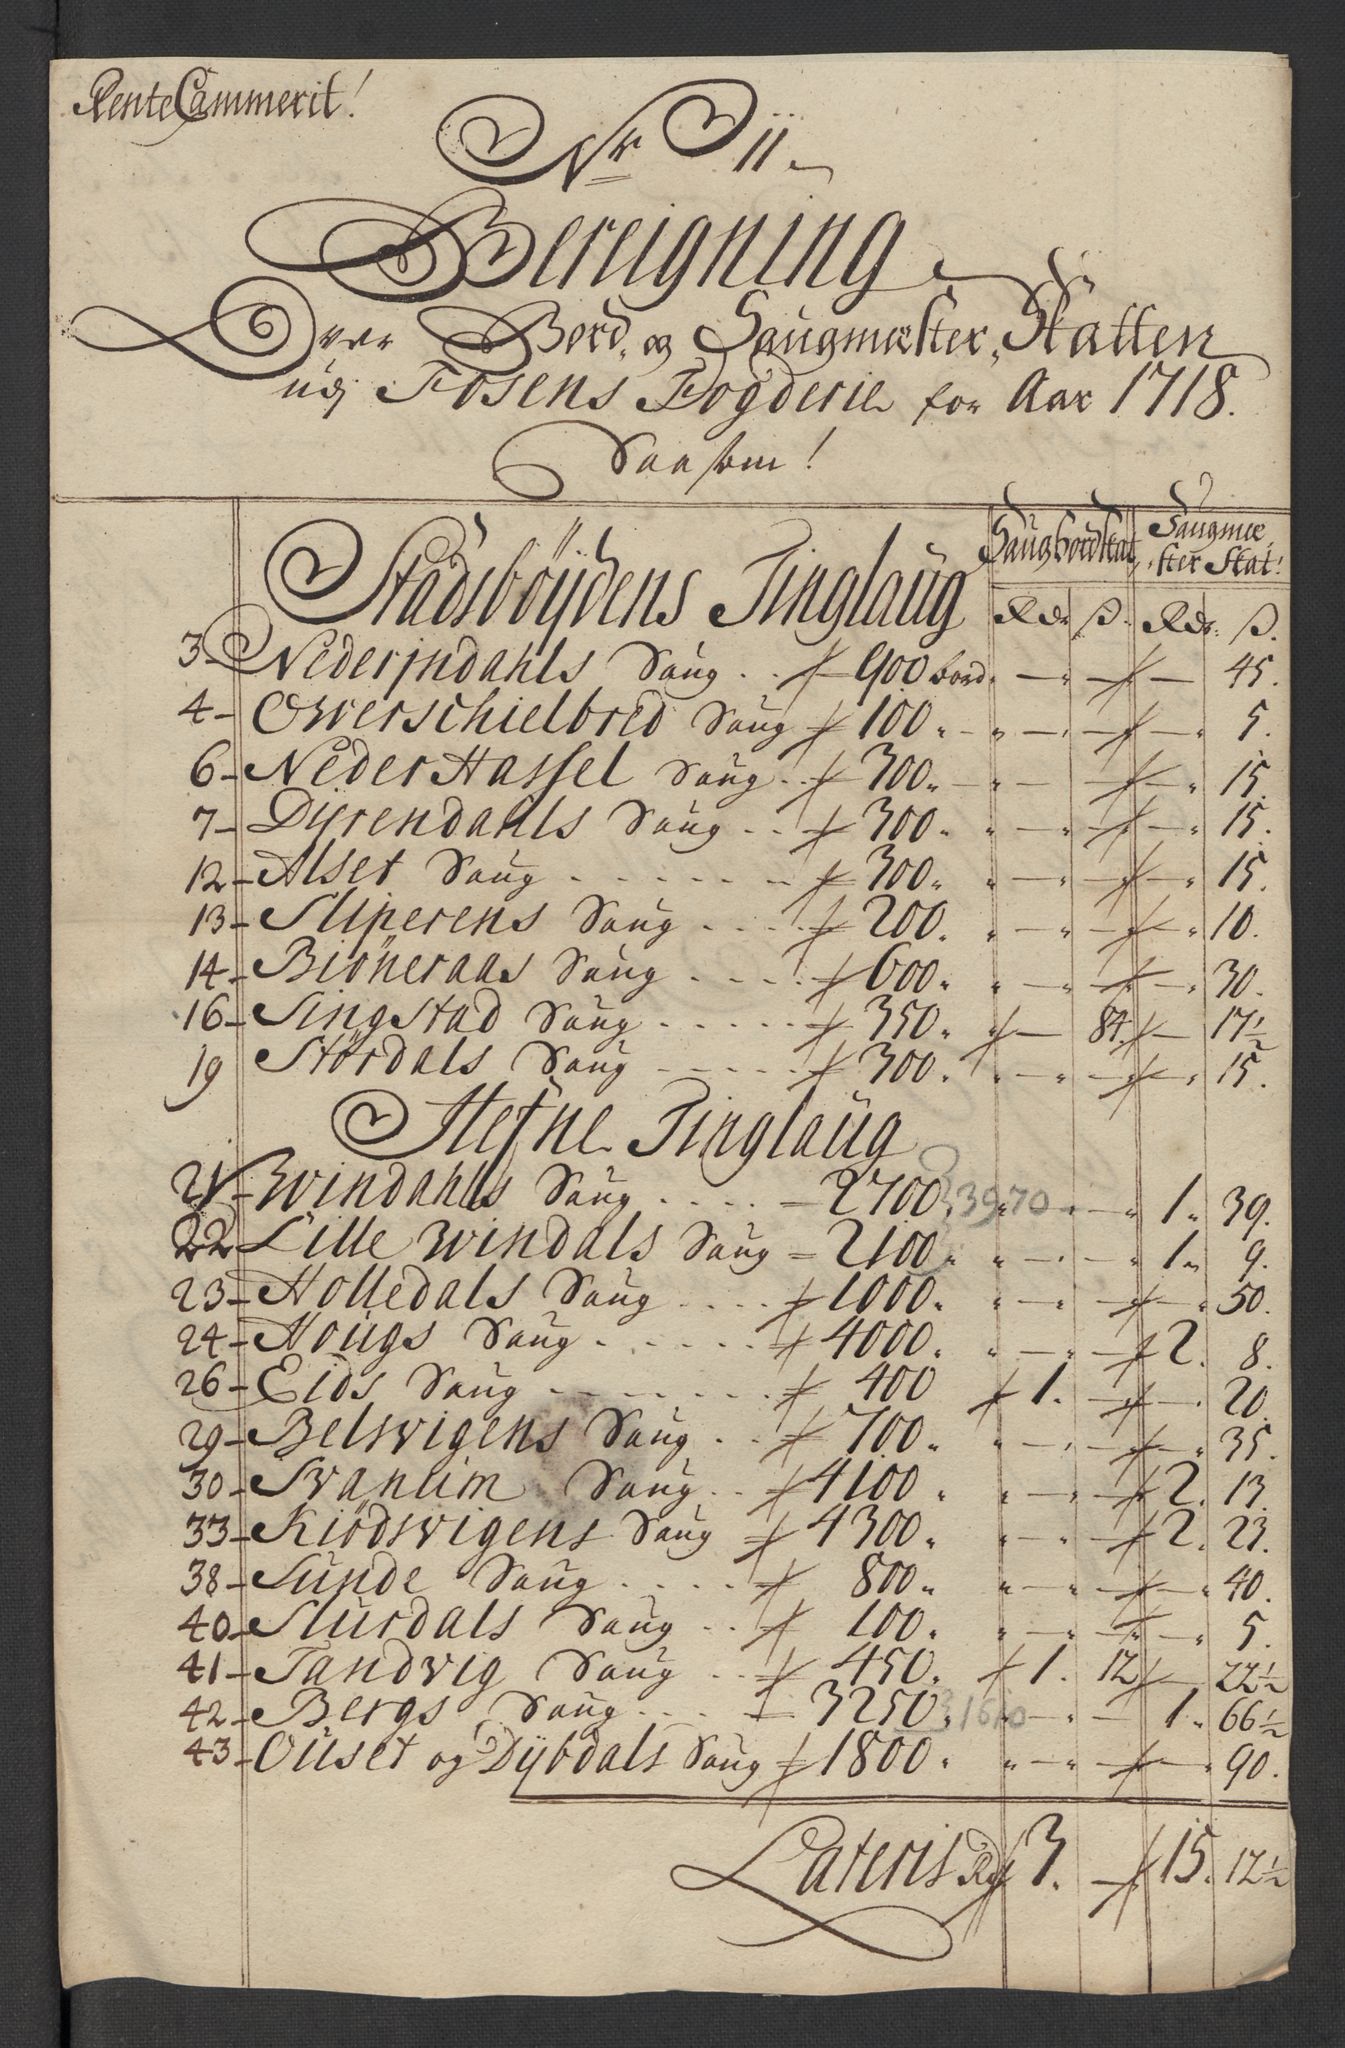 RenteCammerit!
Nr 11
Bereigning
Over Bord, og Saugmester, Skatten
udj Fosens Fogderie for Aar 1718.
Saasom!
Saugbordskat, Saugmester Skat!
Stadsböÿdens Tinglaug Rdr ß. Rdr. ß.
3 Nederjndahls Saug 900 bord 45.
4 Owerschielbred Saug 100 5.
6 Neder Hassel Saug 300 15.
7 Dÿrendahls Saug 300 15.
12 Alset Saug 300 15.
13 Sliperens Saug 200 10.
14 Biöneraas Saug 600 30.
16 Singstad Saug 350 84 17½
19 Stördals Saug 300 15.
Hefne Tinglaug
21 Windahls Saug 2700 3970 1 39.
22 Lille Windals Saug 2100 1 9.
23 Holledals Saug 1000 50.
24 Hougs Saug 4000 2. 8.
26 Eids Saug 400 1. 20.
29 Belsvigens Saug 700 35.
30 Svanlim Saug 4100 2. 13.
33 Kiödsvigens Saug 4300 2. 23.
38 Sunde Saug 800 40.
40 Slurdals Saug 100 5.
41 Tandvig Saug 450 1. 12 22½
42 Bergs Saug 3250 1 66½
43 Ouset og Dÿbdals Saug 1800 90.
Lateris Rd 3. 15. 12½